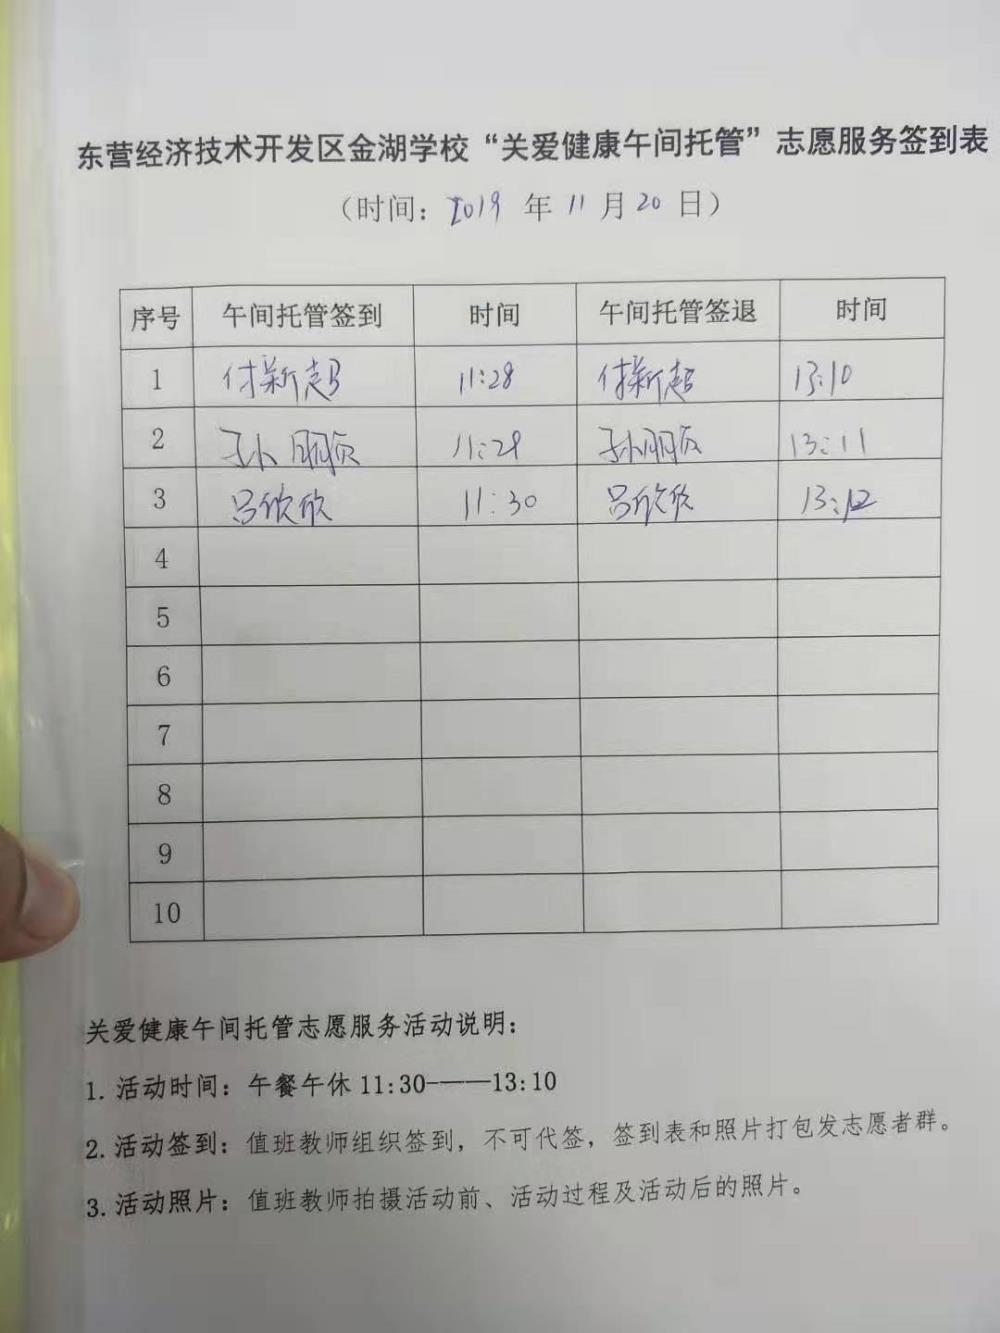 东营经济技术开发区金湖学校“关爱健康午间托管”志愿服务签到表
（时间：2019 年 11 月 20 日）
序号 午间托管签到 时间 午间托管签退 时间
1 付新超 11:28 付新超 13:10
2 孙 11:29 孙 13:11
3 吕欣欣 11:30 吕欣欣 13:12
4
5
6
7
8
9
10
关爱健康午间托管志愿服务活动说明：
1. 活动时间：午餐午休 11:30-——13:10
2. 活动签到：值班教师组织签到，不可代签，签到表和照片打包发志愿者群。
3. 活动照片：值班教师拍摄活动前、活动过程及活动后的照片。